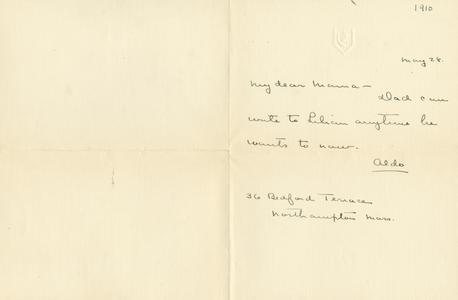 1910
May 28.
My dear Mama –
Dad can
write to Lilian anytime he
wants to now.
Aldo
36 Bedford Terrace
Northampton Mass.